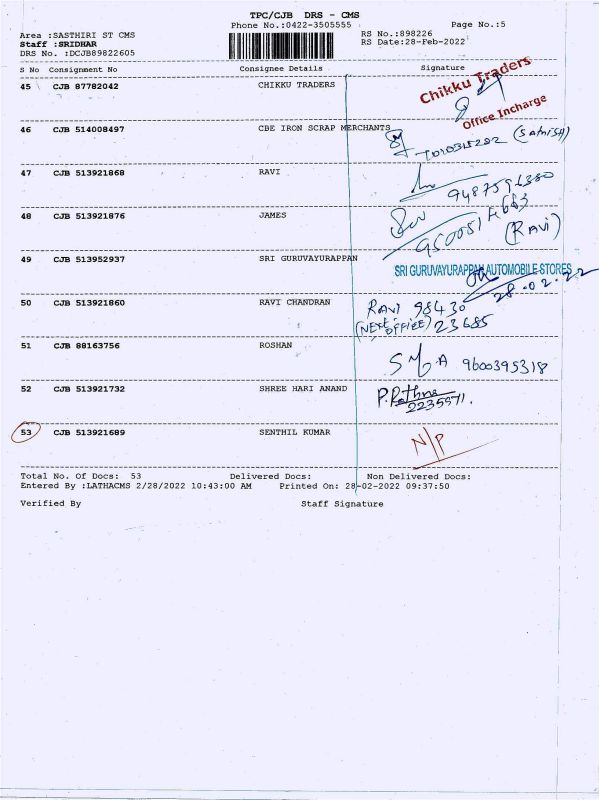 TPC/CJB DRS - CMS
Phone No.:0422-3505555 Page No.:5
Area :SASTHIRI ST CMS RS No.:898226
Staff :SRIDHAR RS Date:28-Feb-2022
DRS No. :DCJB89822605
S No Consignment No Consignee Details Signature
45 CJB 87782042 CHIKKU TRADERS Chikku Traders
Office Incharge
46 CJB 514008497 CBE IRON SCRAP MERCHANTS
(Sathish)
47 CJB 513921868 RAVI
9487596380
48 CJB 513921876 JAMES
(RAVI)
49 CJB 513952937 SRI GURUVAYURAPPAN SRI GURUVAYURAPPAN AUTOMOBILE STORES
28.02.22
50 CJB 513921860 RAVI CHANDRAN RAVI 98430
(NEXT OFFICE) 23685
51 CJB 88163756 ROSHAN
9600395318
52 CJB 513921732 SHREE HARI ANAND P.Rathna
2235571.
53 CJB 513921689 SENTHIL KUMAR N/P
Total No. Of Docs: 53 Delivered Docs: Non Delivered Docs:
Entered By :LATHACMS 2/28/2022 10:43:00 AM Printed On: 28-02-2022 09:37:50
Verified By Staff Signature